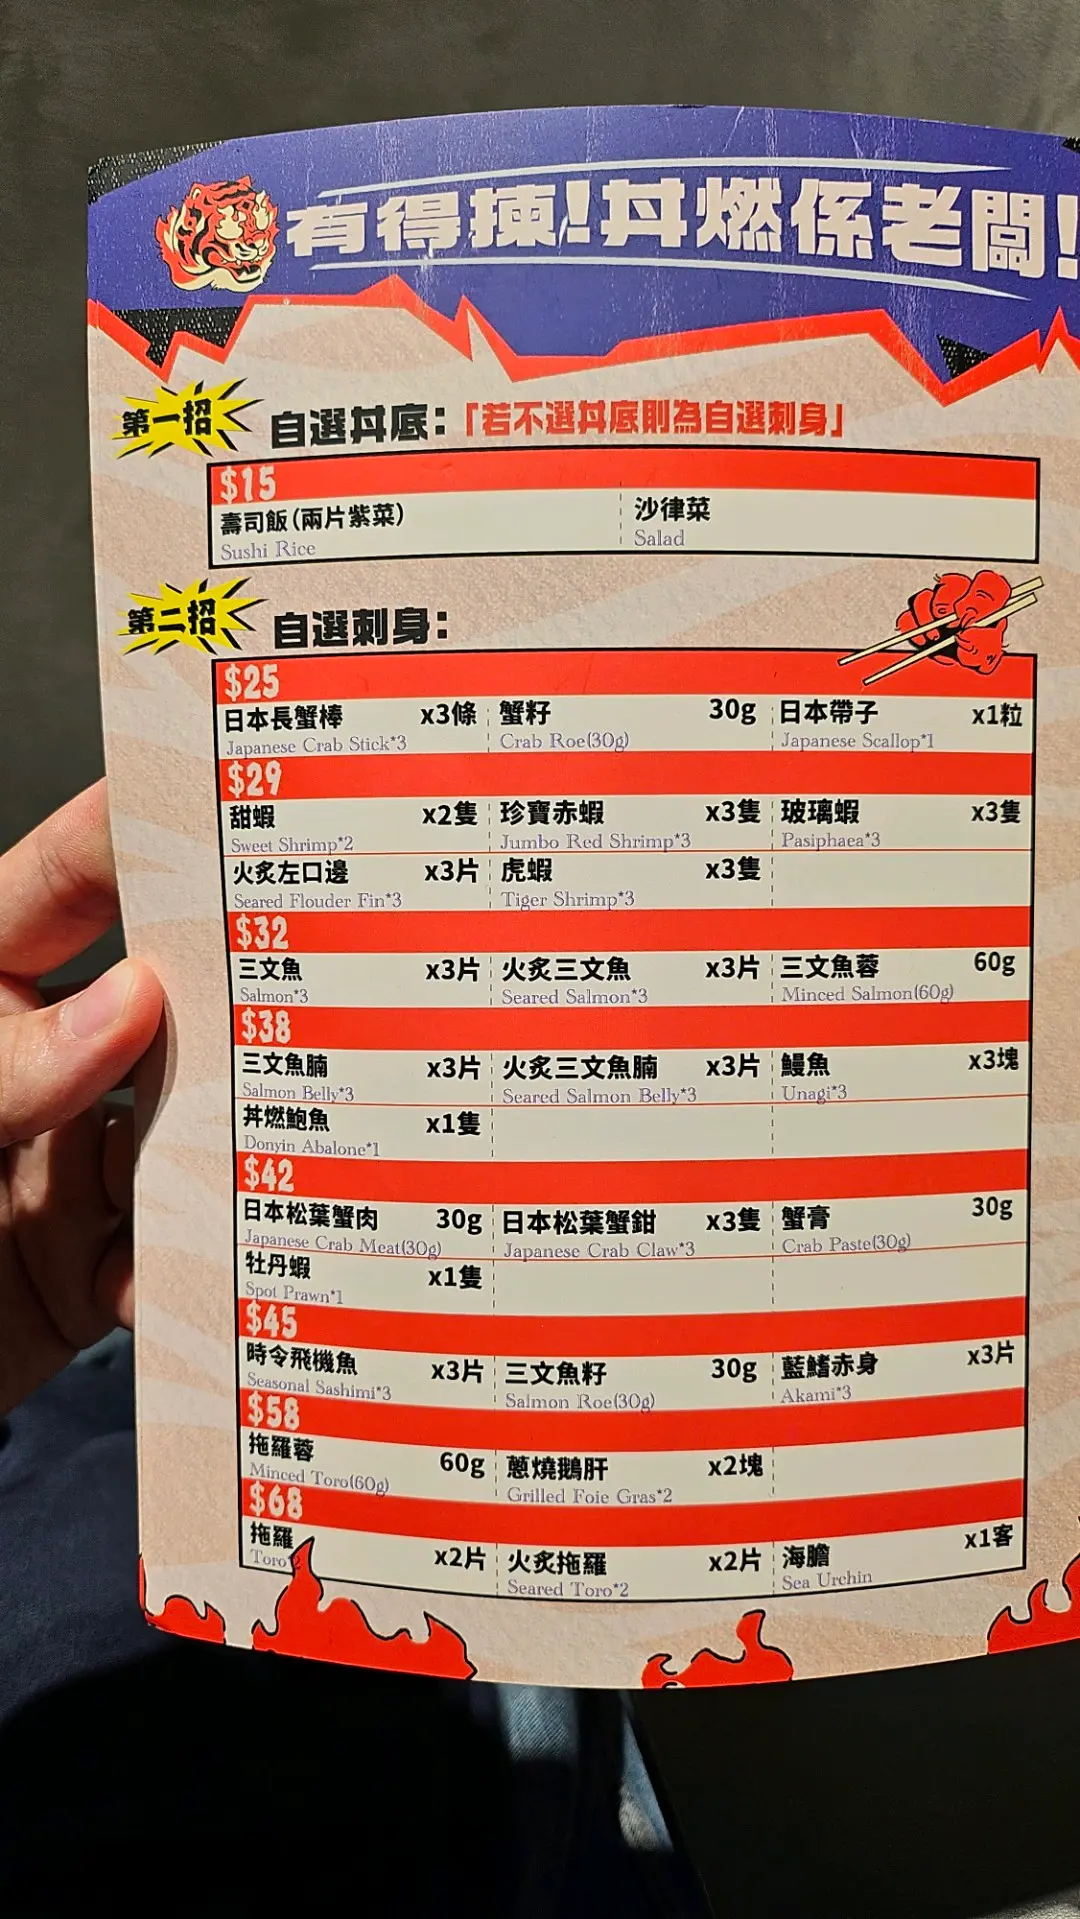 有得揀!丼燃係老闆!
第一招 自選丼底:「若不選丼底則為自選刺身」
$15
壽司飯(兩片紫菜) 沙律菜
Sushi Rice Salad
第二招 自選刺身:
$25
日本長蟹棒 x3條 蟹籽 30g 日本帶子 x1粒
Japanese Crab Stick*3 Crab Roe(30g) Japanese Scallop*1
$29
甜蝦 x2隻 珍寶赤蝦 x3隻 玻璃蝦 x3隻
Sweet Shrimp*2 Jumbo Red Shrimp*3 Pasiphaea*3
火炙左口邊 x3片 虎蝦 x3隻
Seared Flouder Fin*3 Tiger Shrimp*3
$32
三文魚 x3片 火炙三文魚 x3片 三文魚蓉 60g
Salmon*3 Seared Salmon*3 Minced Salmon(60g)
$38
三文魚腩 x3片 火炙三文魚腩 x3片 鰻魚 x3塊
Salmon Belly*3 Seared Salmon Belly*3 Unagi*3
丼燃鮑魚 x1隻
Donyin Abalone*1
$42
日本松葉蟹肉 30g 日本松葉蟹鉗 x3隻 蟹膏 30g
Japanese Crab Meat(30g) Japanese Crab Claw*3 Crab Paste(30g)
牡丹蝦 x1隻
Spot Prawn*1
$45
時令飛機魚 x3片 三文魚籽 30g 藍鰭赤身 x3片
Seasonal Sashimi*3 Salmon Roe(30g) Akami*3
$58
拖羅蓉 60g 蔥燒鵝肝 x2塊
Minced Toro(60g) Grilled Foie Gras*2
$68
拖羅 x2片 火炙拖羅 x2片 海膽 x1客
Toro*2 Seared Toro*2 Sea Urchin